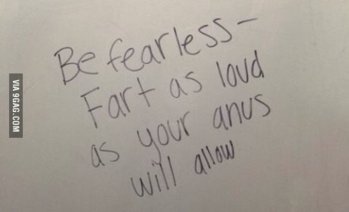 Be fearless-
Fart as loud
as your anus
will allow
VIA 9GAG.COM